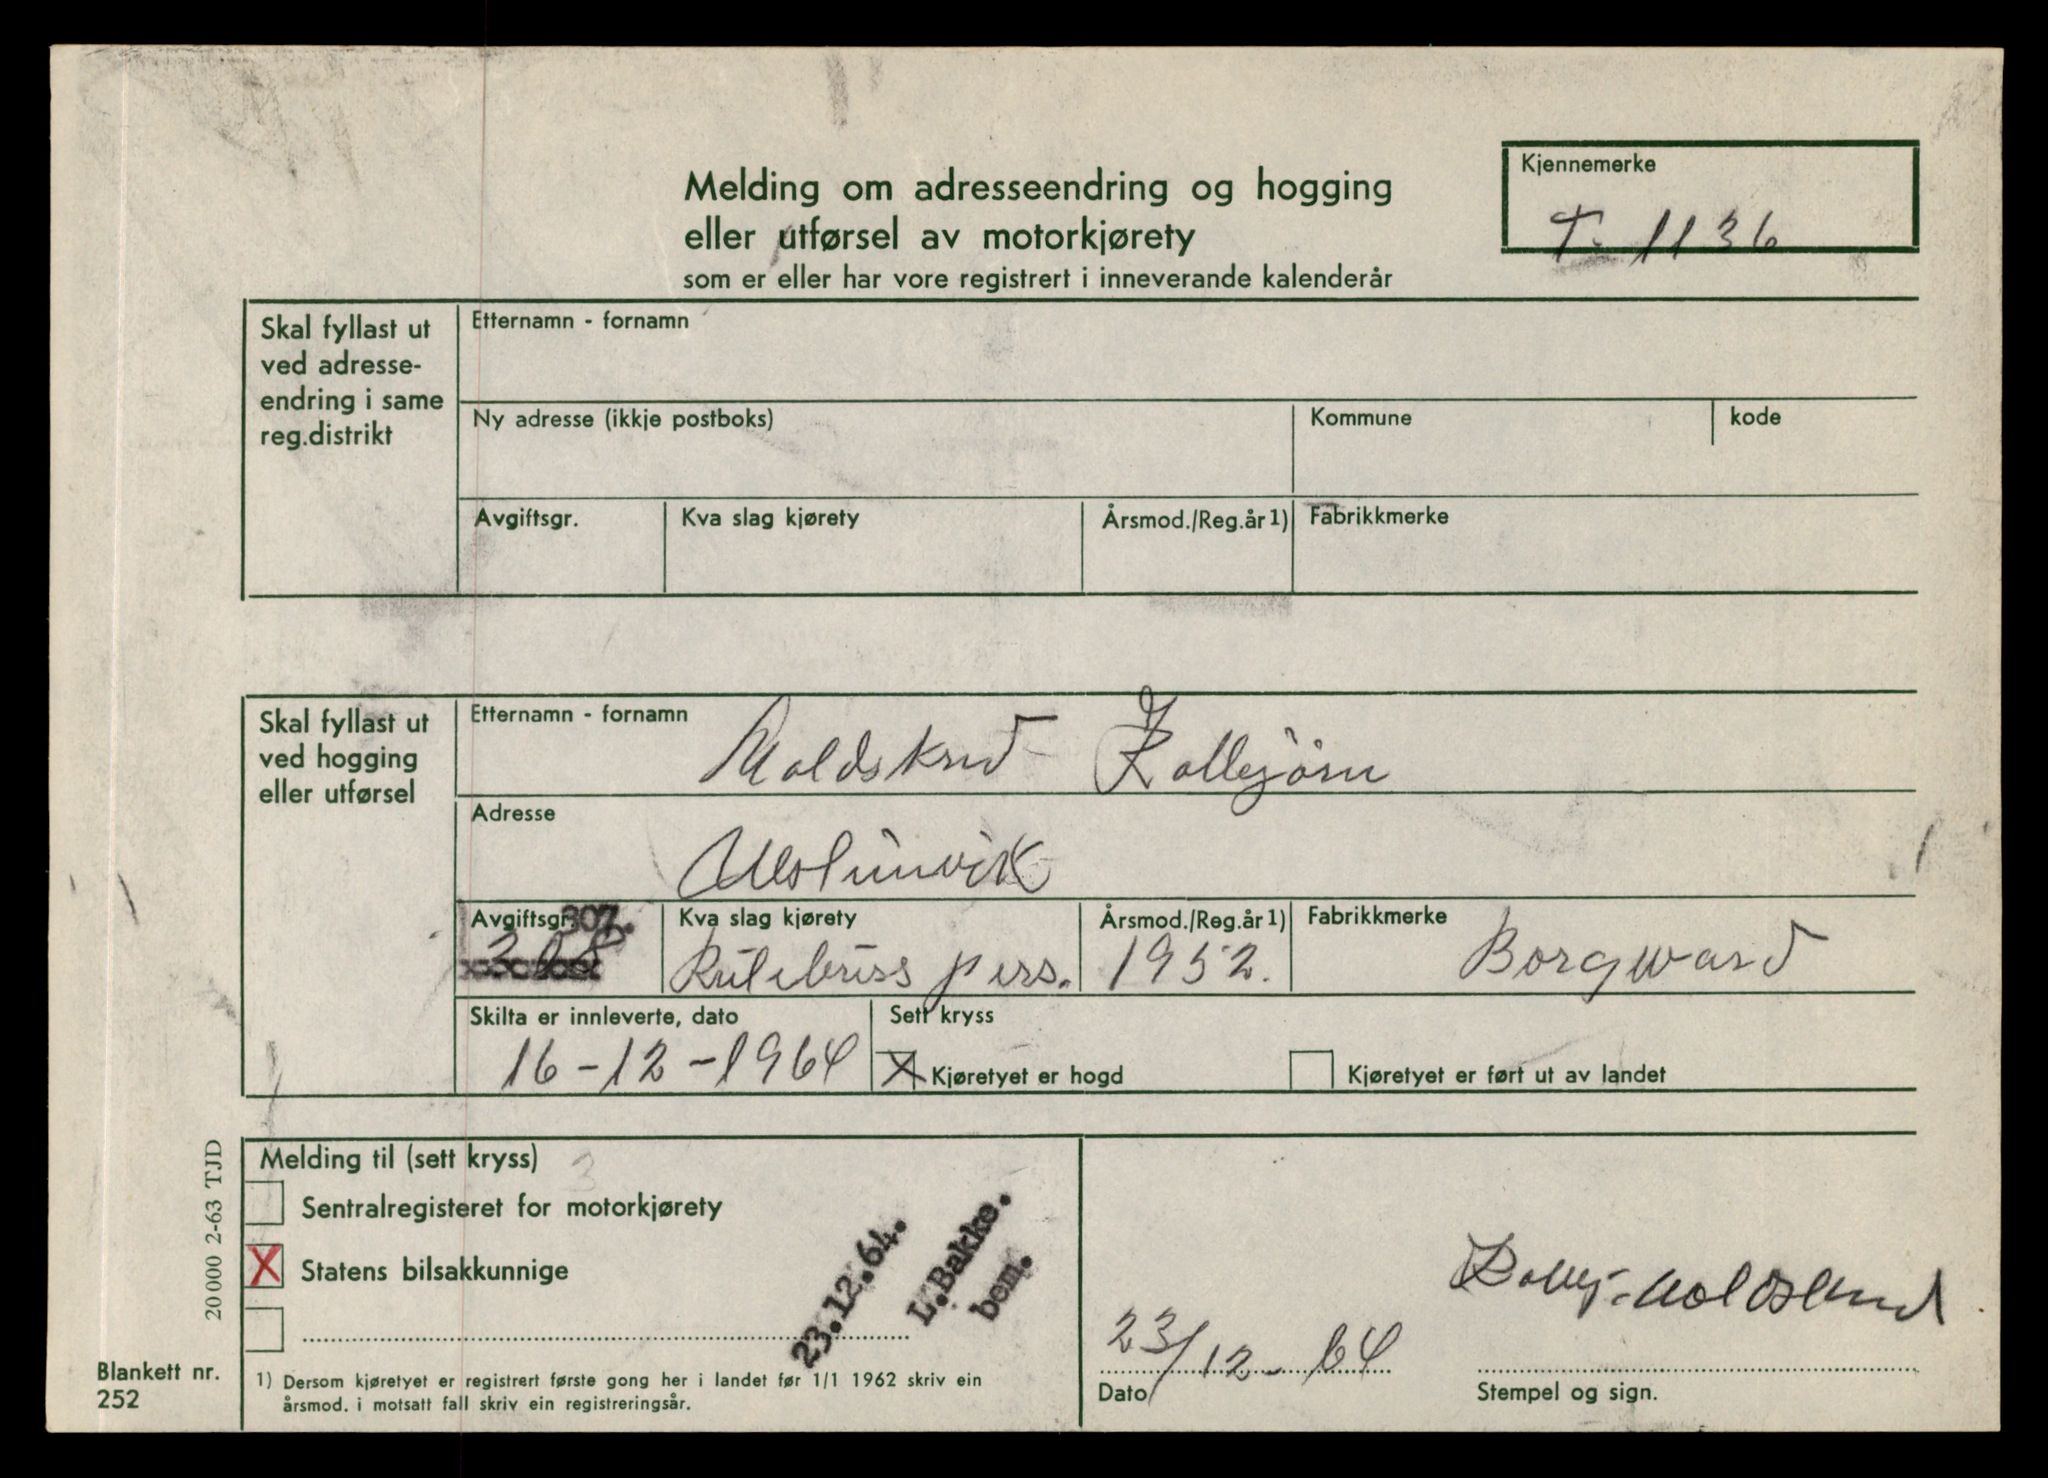 Melding om adresseendring og hogging
eller utførsel av motorkjørety
som er eller har vore registrert i inneverande kalenderår
Kjennemerke
T- 1136
Skal fyllast ut
ved adresse-
endring i same
reg.distrikt
Etternamn - fornamn
Ny adresse (ikkje postboks)
Kommune
kode
Avgiftsgr.
Kva slag kjørety
Årsmod./Reg.år 1)
Fabrikkmerke
Skal fyllast ut
ved hogging
eller utførsel
Etternamn - fornamn
Moldskred
Adresse
Avgiftsgr. 307.
308
Kva slag kjørety
Rutebuss pers.
Årsmod./Reg.år 1)
1952.
Fabrikkmerke
Borgward
Skilta er innleverte, dato
16-12-1964
Sett kryss
X Kjøretyet er hogd
Kjøretyet er ført ut av landet
Melding til (sett kryss)
Sentralregisteret for motorkjørety
X Statens bilsakkunnige
23.12.64.
L.Bakke.
bem.
1) Dersom kjøretyet er registrert første gong her i landet før 1/1 1962 skriv ein
årsmod. i motsatt fall skriv ein registreringsår.
23/12-64
Dato
Stempel og sign.
20000 2-63 TJD
Blankett nr.
252